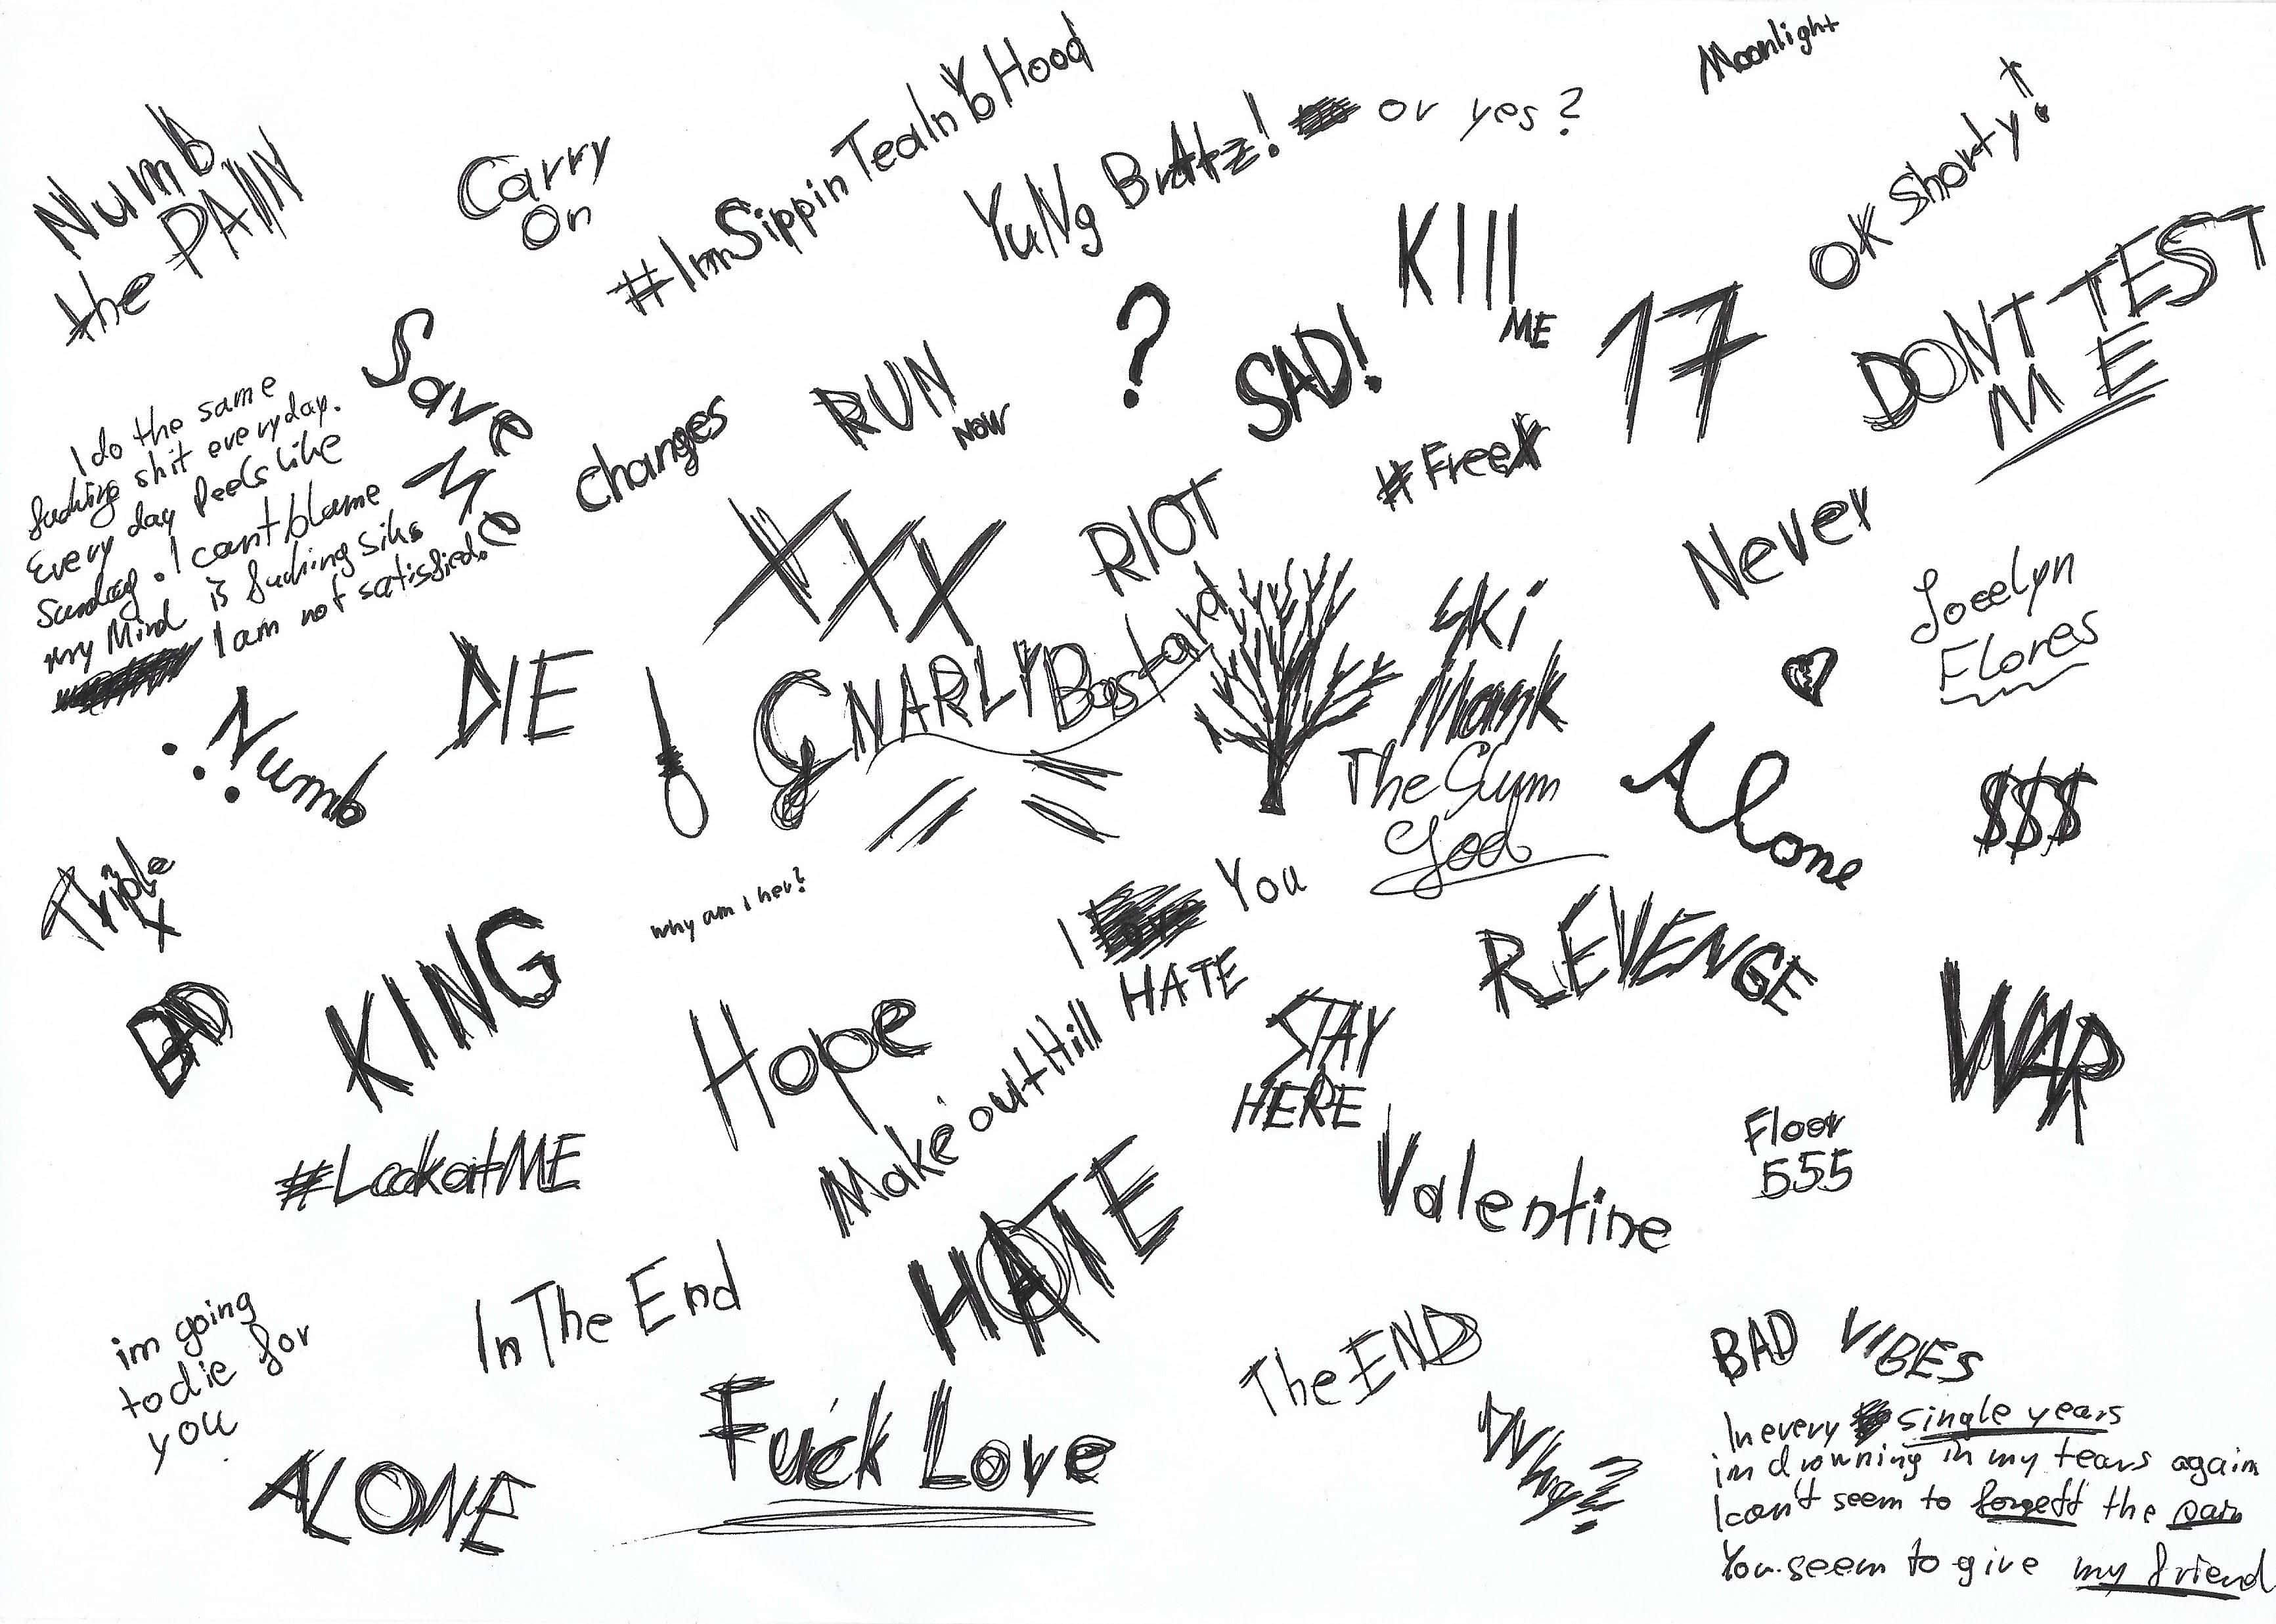 Moonlight
Numb
the PAIN
Carry
On
#ImSippinTeaInYoHood
YuNg Bratz! or yes?
OK Shorty!
KIll
ME
17
DONT TEST
ME
?
SAD!
Save
Me
changes
RUN
NOW
#FreeX
I do the same
fucking shit everyday.
Every day feels like
Sunday. I cant blame
my Mind is fucking
I am not satisfied.
XXX
RIOT
Never
Jocelyn
Flores
Ski
Mask
The Slum
God
DIE
GNARLY Bastard
Numb
Alone
$$$
Triple
X
why am i her?
I Love You
HATE
REVENGE
BAD
KING
Hope
Make out Hill
STAY
HERE
WAR
Floor
555
#LookatME
Valentine
HATE
im going
to die for
you
In The End
The END
BAD VIBES
In every single years
im drowning in my tears again
I can't seem to forgett the pain
You seem to give my friend
Why?
Fuck Love
ALONE